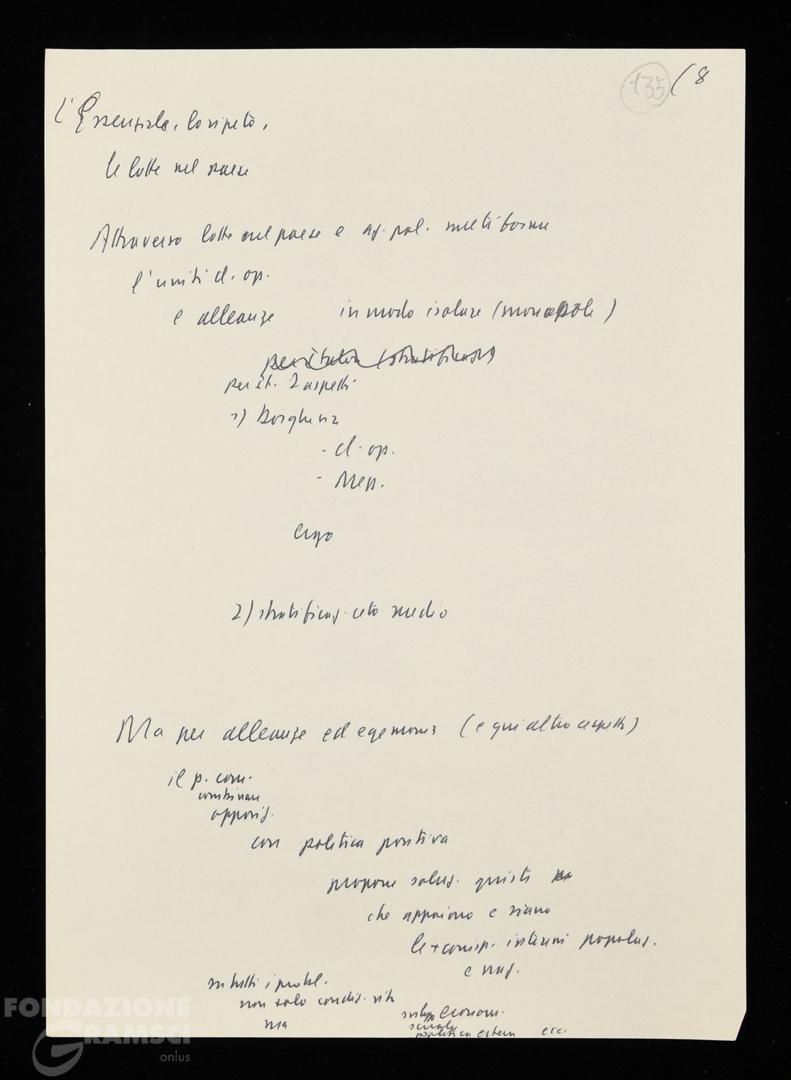 135 / 8
L'Essenziale, lo ripeto,
le lotte nel paese
Attraverso lotte nel paese e az. pol. multiforme
l'unità cl. op.
e alleanze in modo isolare (monopoli)
per it. 2 aspetti
1) Borghesia
- cl. op.
- Mezz.
ergo
2) stratificaz. ceto medio
Ma per alleanze ed egemonia (e qui altro aspetto)
il p. com.
combinare
opposiz.
con politica positiva
propone soluz. giuste
che appaiono e siano
le + corrisp. interessi popolaz.
e naz.
su tutti i probl.
non solo condiz. vita
ma
svilupp econom.
scuola
politica estera etc.
FONDAZIONE
GRAMSCI
onlus